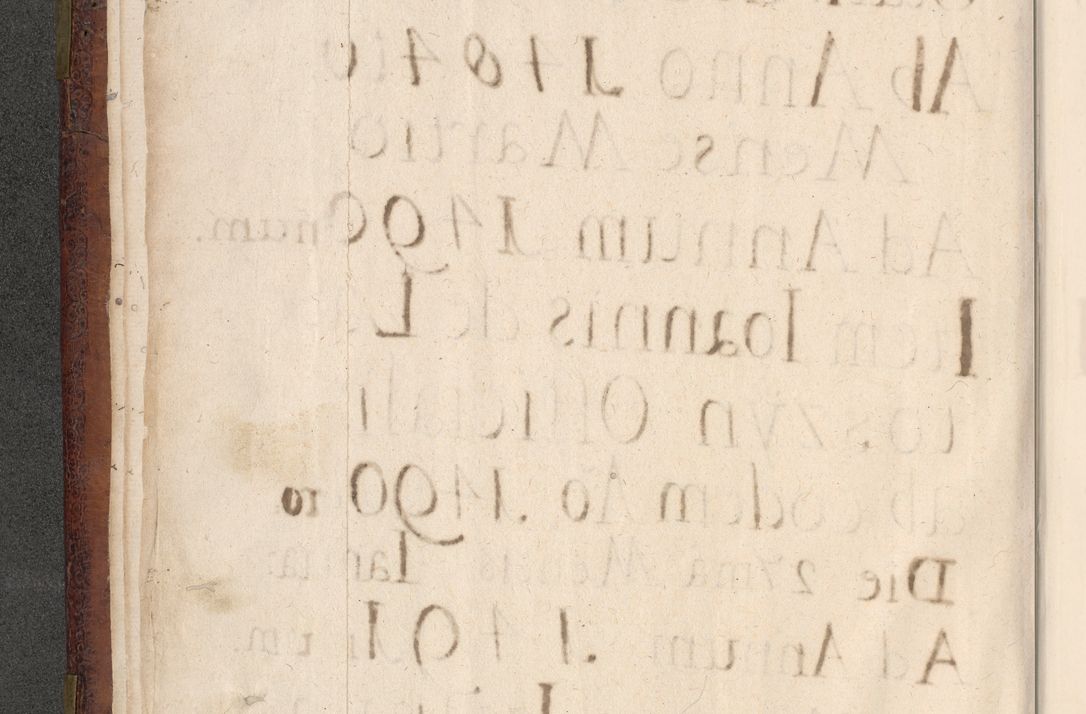 Ab Anno 1484to
Mense Martio
Ad Annum 1490mum.
Item Ioannis de L
toszyn Officiali
ab eodem Ao. 1490 ro
Die 27ma Mensis Ianuar
Ad Annum 1491